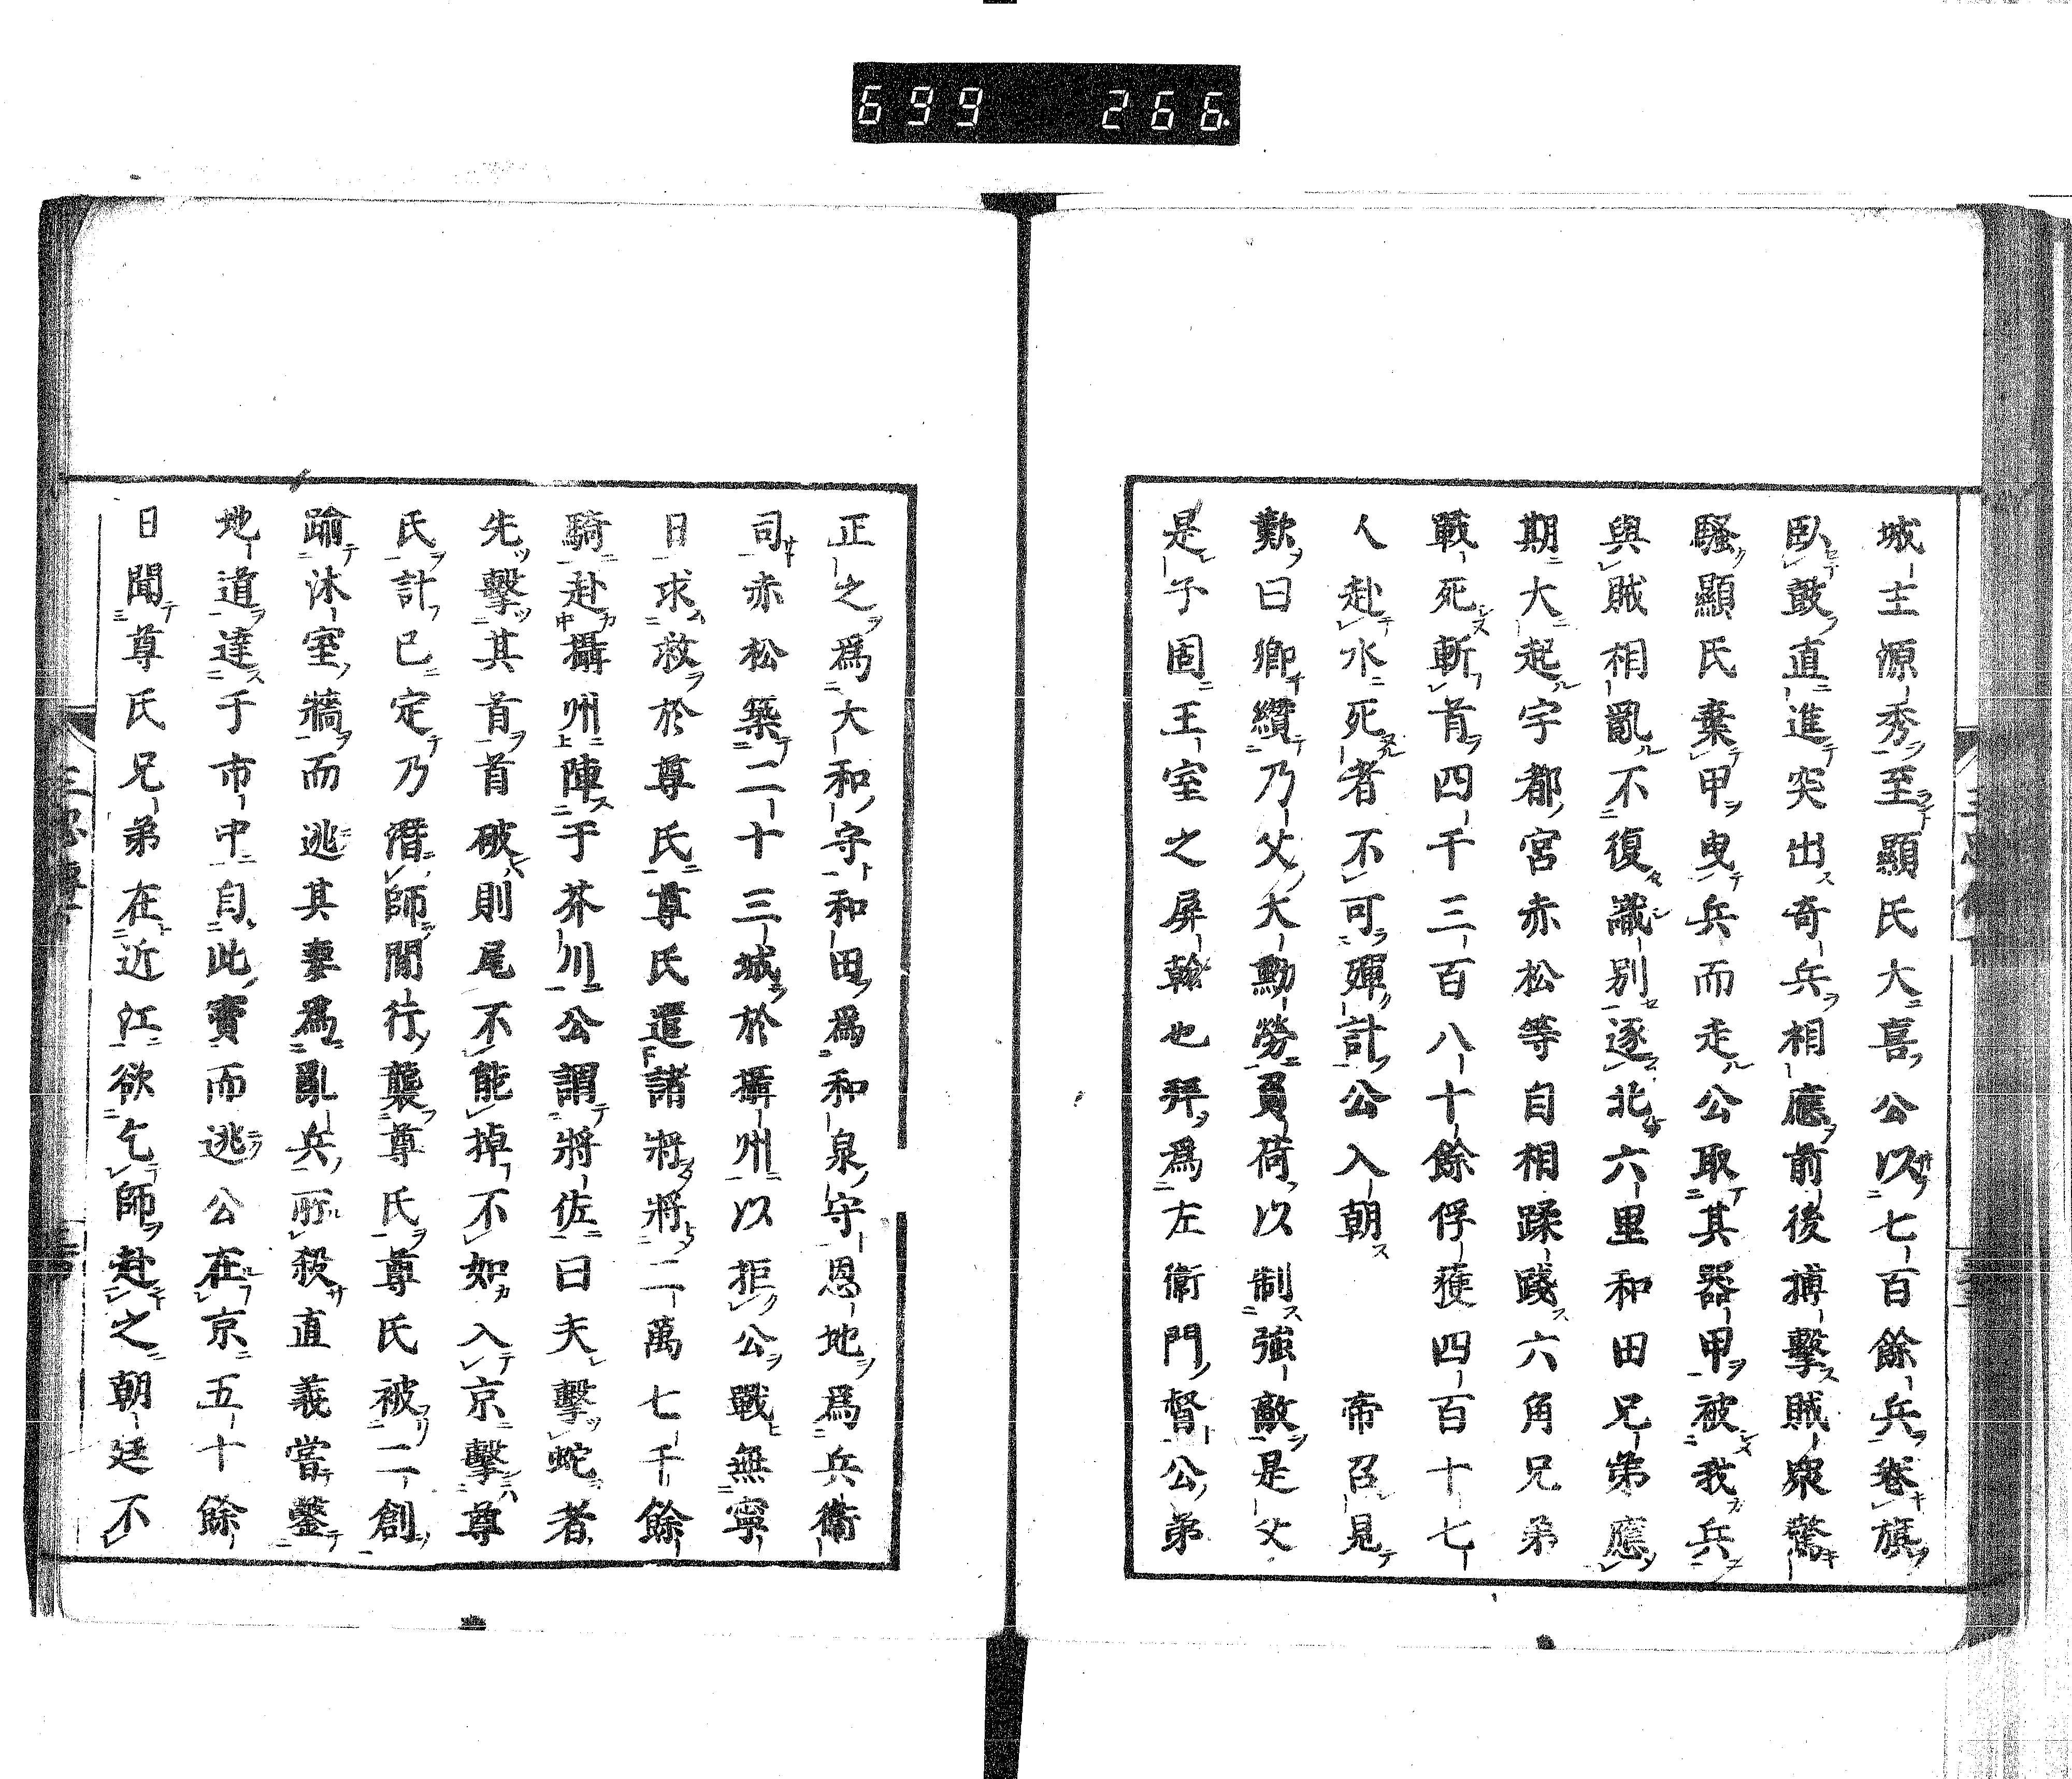 699 266
城主源秀至顯氏大喜公以七百餘兵卷旗
臥鼓直進突出奇兵相應前後搏擊賊衆驚
騷顯氏棄甲曳兵而走公取其器甲被我兵
與賊相亂不復識別逐北六里和田兄弟應
期大起宇都宮赤松等自相蹂踐六角兄弟
戰死斬首四千三百八十餘俘獲四百十七
人赴水死者不可殫計公入朝 帝召見
歎曰卿纘乃父大勳勞負荷以制強敵是父
是子固王室之屏翰也拜爲左衞門督公弟
正之爲大和守和田爲和泉守恩地爲兵衞
司赤松築二十三城於攝州以拒公戰無寧
日求救於尊氏尊氏遣諸將將二萬七千餘
騎赴攝州陣于芥川公謂將佐曰夫擊蛇者
先擊其首首破則尾不能掉不如入京擊尊
氏計已定乃潛師間行襲尊氏尊氏被二創
踰沐室牆而逃其妻爲亂兵所殺直義嘗鑿
地道達于市中自此竇而逃公在京五十餘
日聞尊氏兄弟在近江欲乞師赴之朝廷不